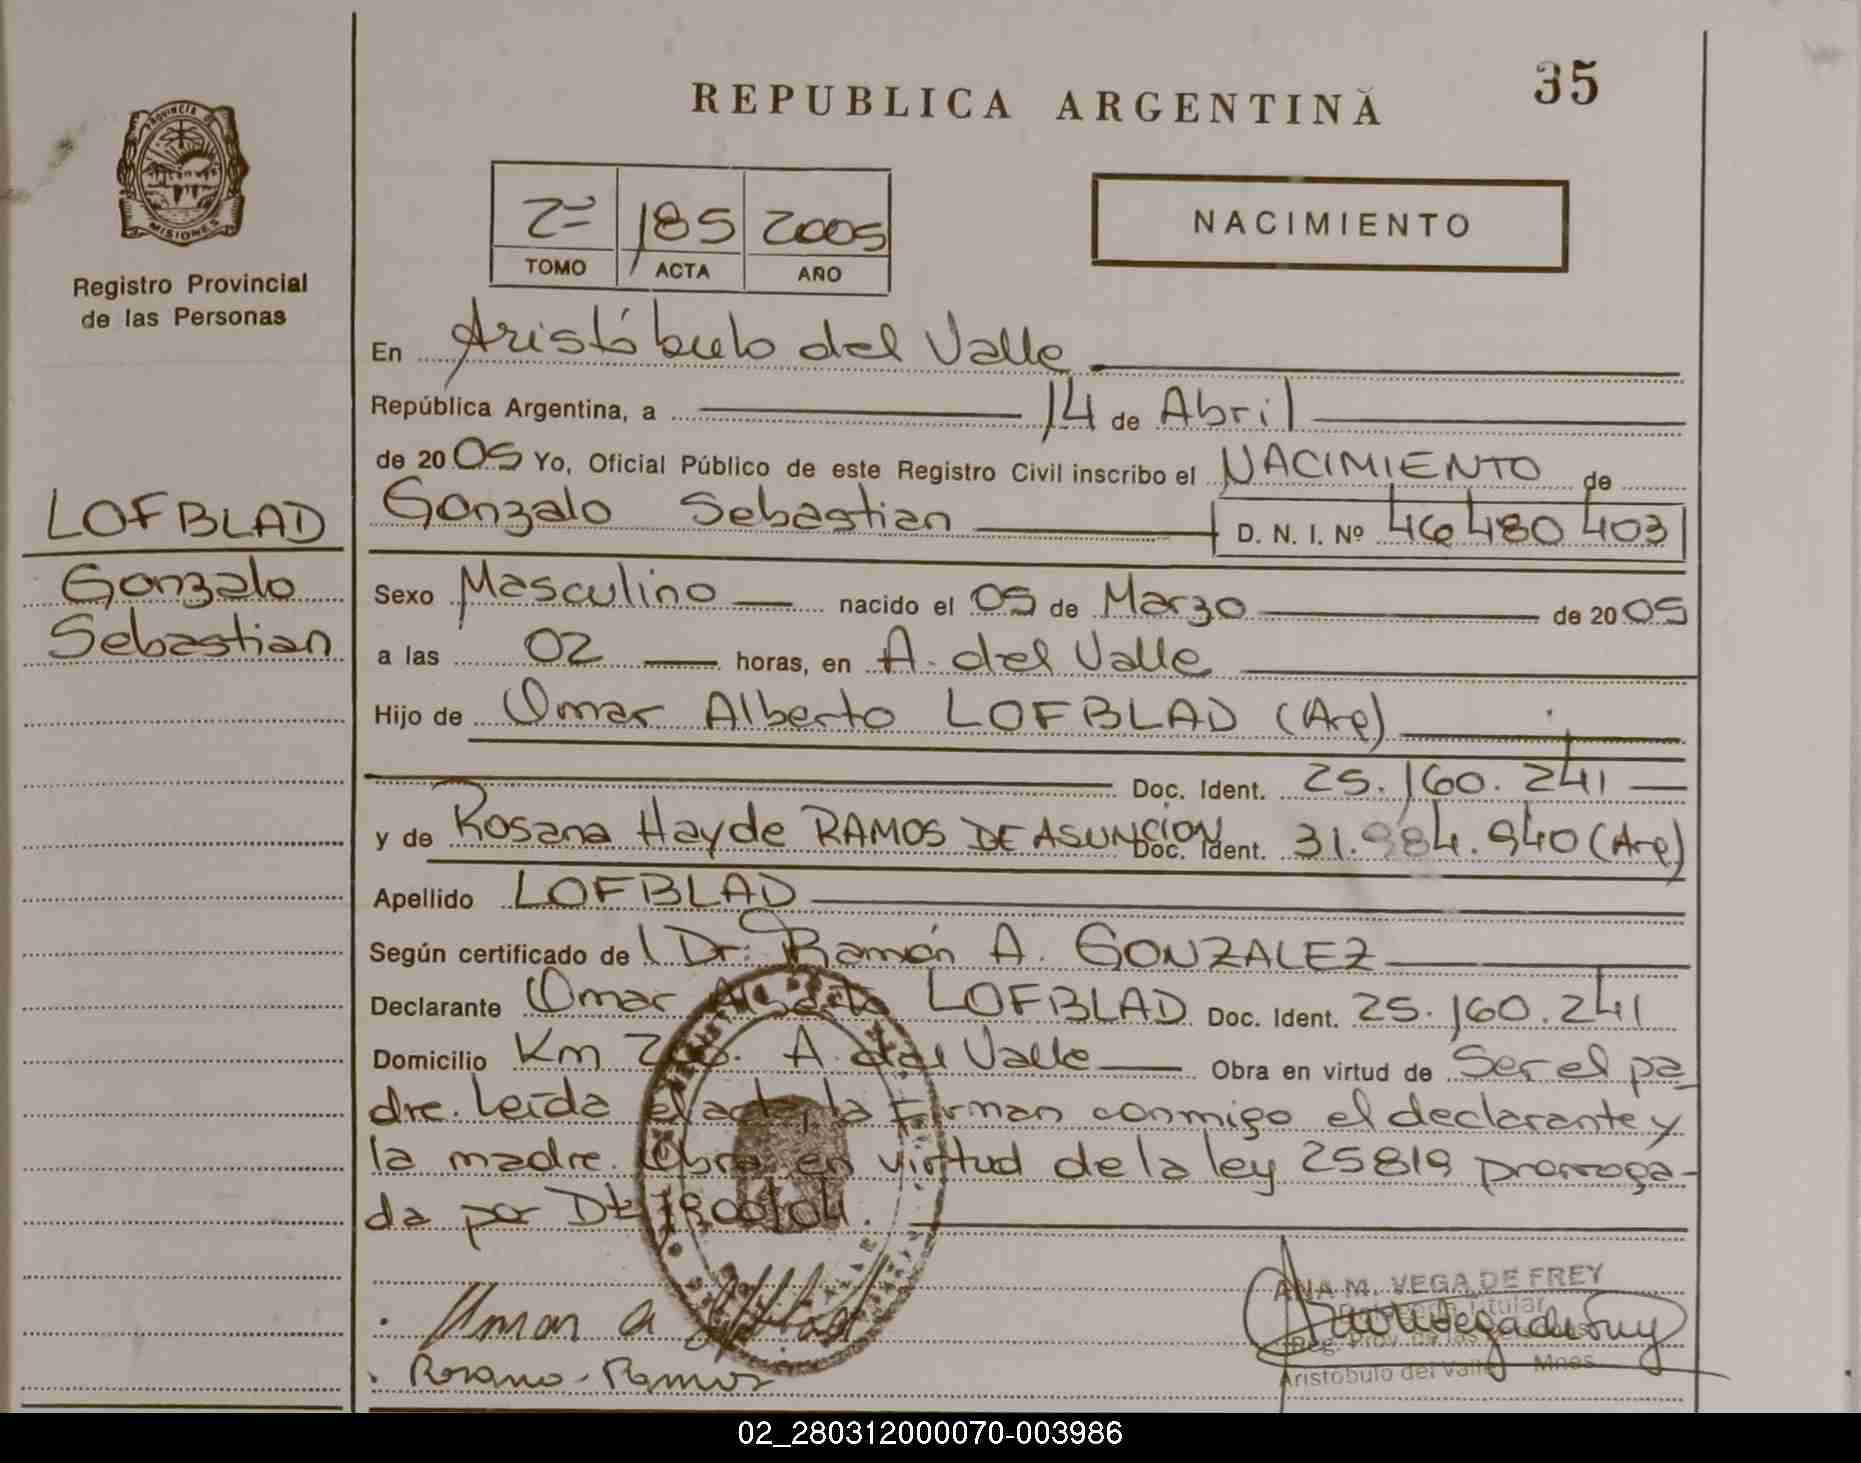 35
REPUBLICA ARGENTINA
PROVINCIA DE
MISIONES
Registro Provincial
de las Personas
2º 185 2005
TOMO ACTA AÑO
NACIMIENTO
En Aristóbulo del Valle
República Argentina, a 14 de Abril
de 2005 Yo, Oficial Público de este Registro Civil inscribo el NACIMIENTO de
LOFBLAD
Gonzalo
Sebastian
Gonzalo Sebastian D. N. I. Nº 46480403
Sexo Masculino nacido el 05 de Marzo de 2005
a las 02 horas, en A. del Valle
Hijo de Omar Alberto LOFBLAD (Arg)
Doc. Ident. 25.160.241
y de Rosana Hayde RAMOS DE ASUNCION Doc. Ident. 31.984.940 (Arg)
Apellido LOFBLAD
Según certificado de Dr. Ramón A. GONZALEZ
Declarante Omar Alberto LOFBLAD Doc. Ident. 25.160.241
Domicilio Km A. del Valle Obra en virtud de Ser el pa
dre. Leída el acta, la Firman conmigo el declarante y
la madre. Obra en virtud de la ley 25819 prorroga-
da por Dto 1800/04.
Omar A
Rosana Ramos
ANA M. VEGA DE FREY
Titular
Reg. Prov. de las
Aristóbulo del Valle Mnes
02_280312000070-003986